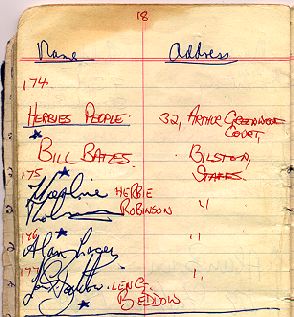 18
Name Address
174
HERBIES PEOPLE 32, ARTHUR GREENWOOD
COURT,
BILL BATES. BILSTON,
STAFFS.
175
HERBIE
ROBINSON "
176
Alan "
177
LEN G.
BEDDOW